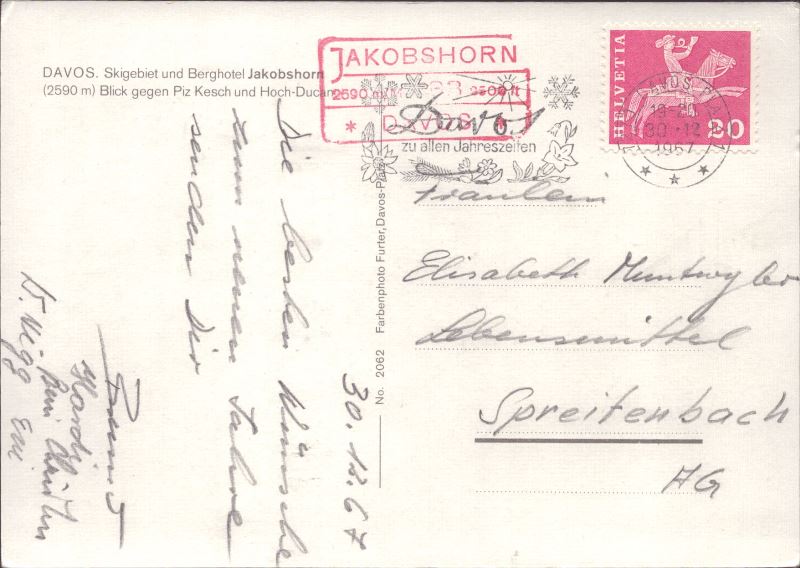 DAVOS. Skigebiet und Berghotel Jakobshorn
(2590 m) Blick gegen Piz Kesch und Hoch-Ducan
JAKOBSHORN
2590 m 8500 ft
* DAVOS *
Davos
zu allen Jahreszeiten
HELVETIA
20
DAVOS PLATZ 1
30.12
1967
30.12.67
Die besten Wünsche
zum neuen Jahre
senden Dir
Hardi
No. 2062 Farbenphoto Furter, Davos-Platz
Fräulein
Elisabeth Muntwyler
Lebensmittel
Spreitenbach
AG